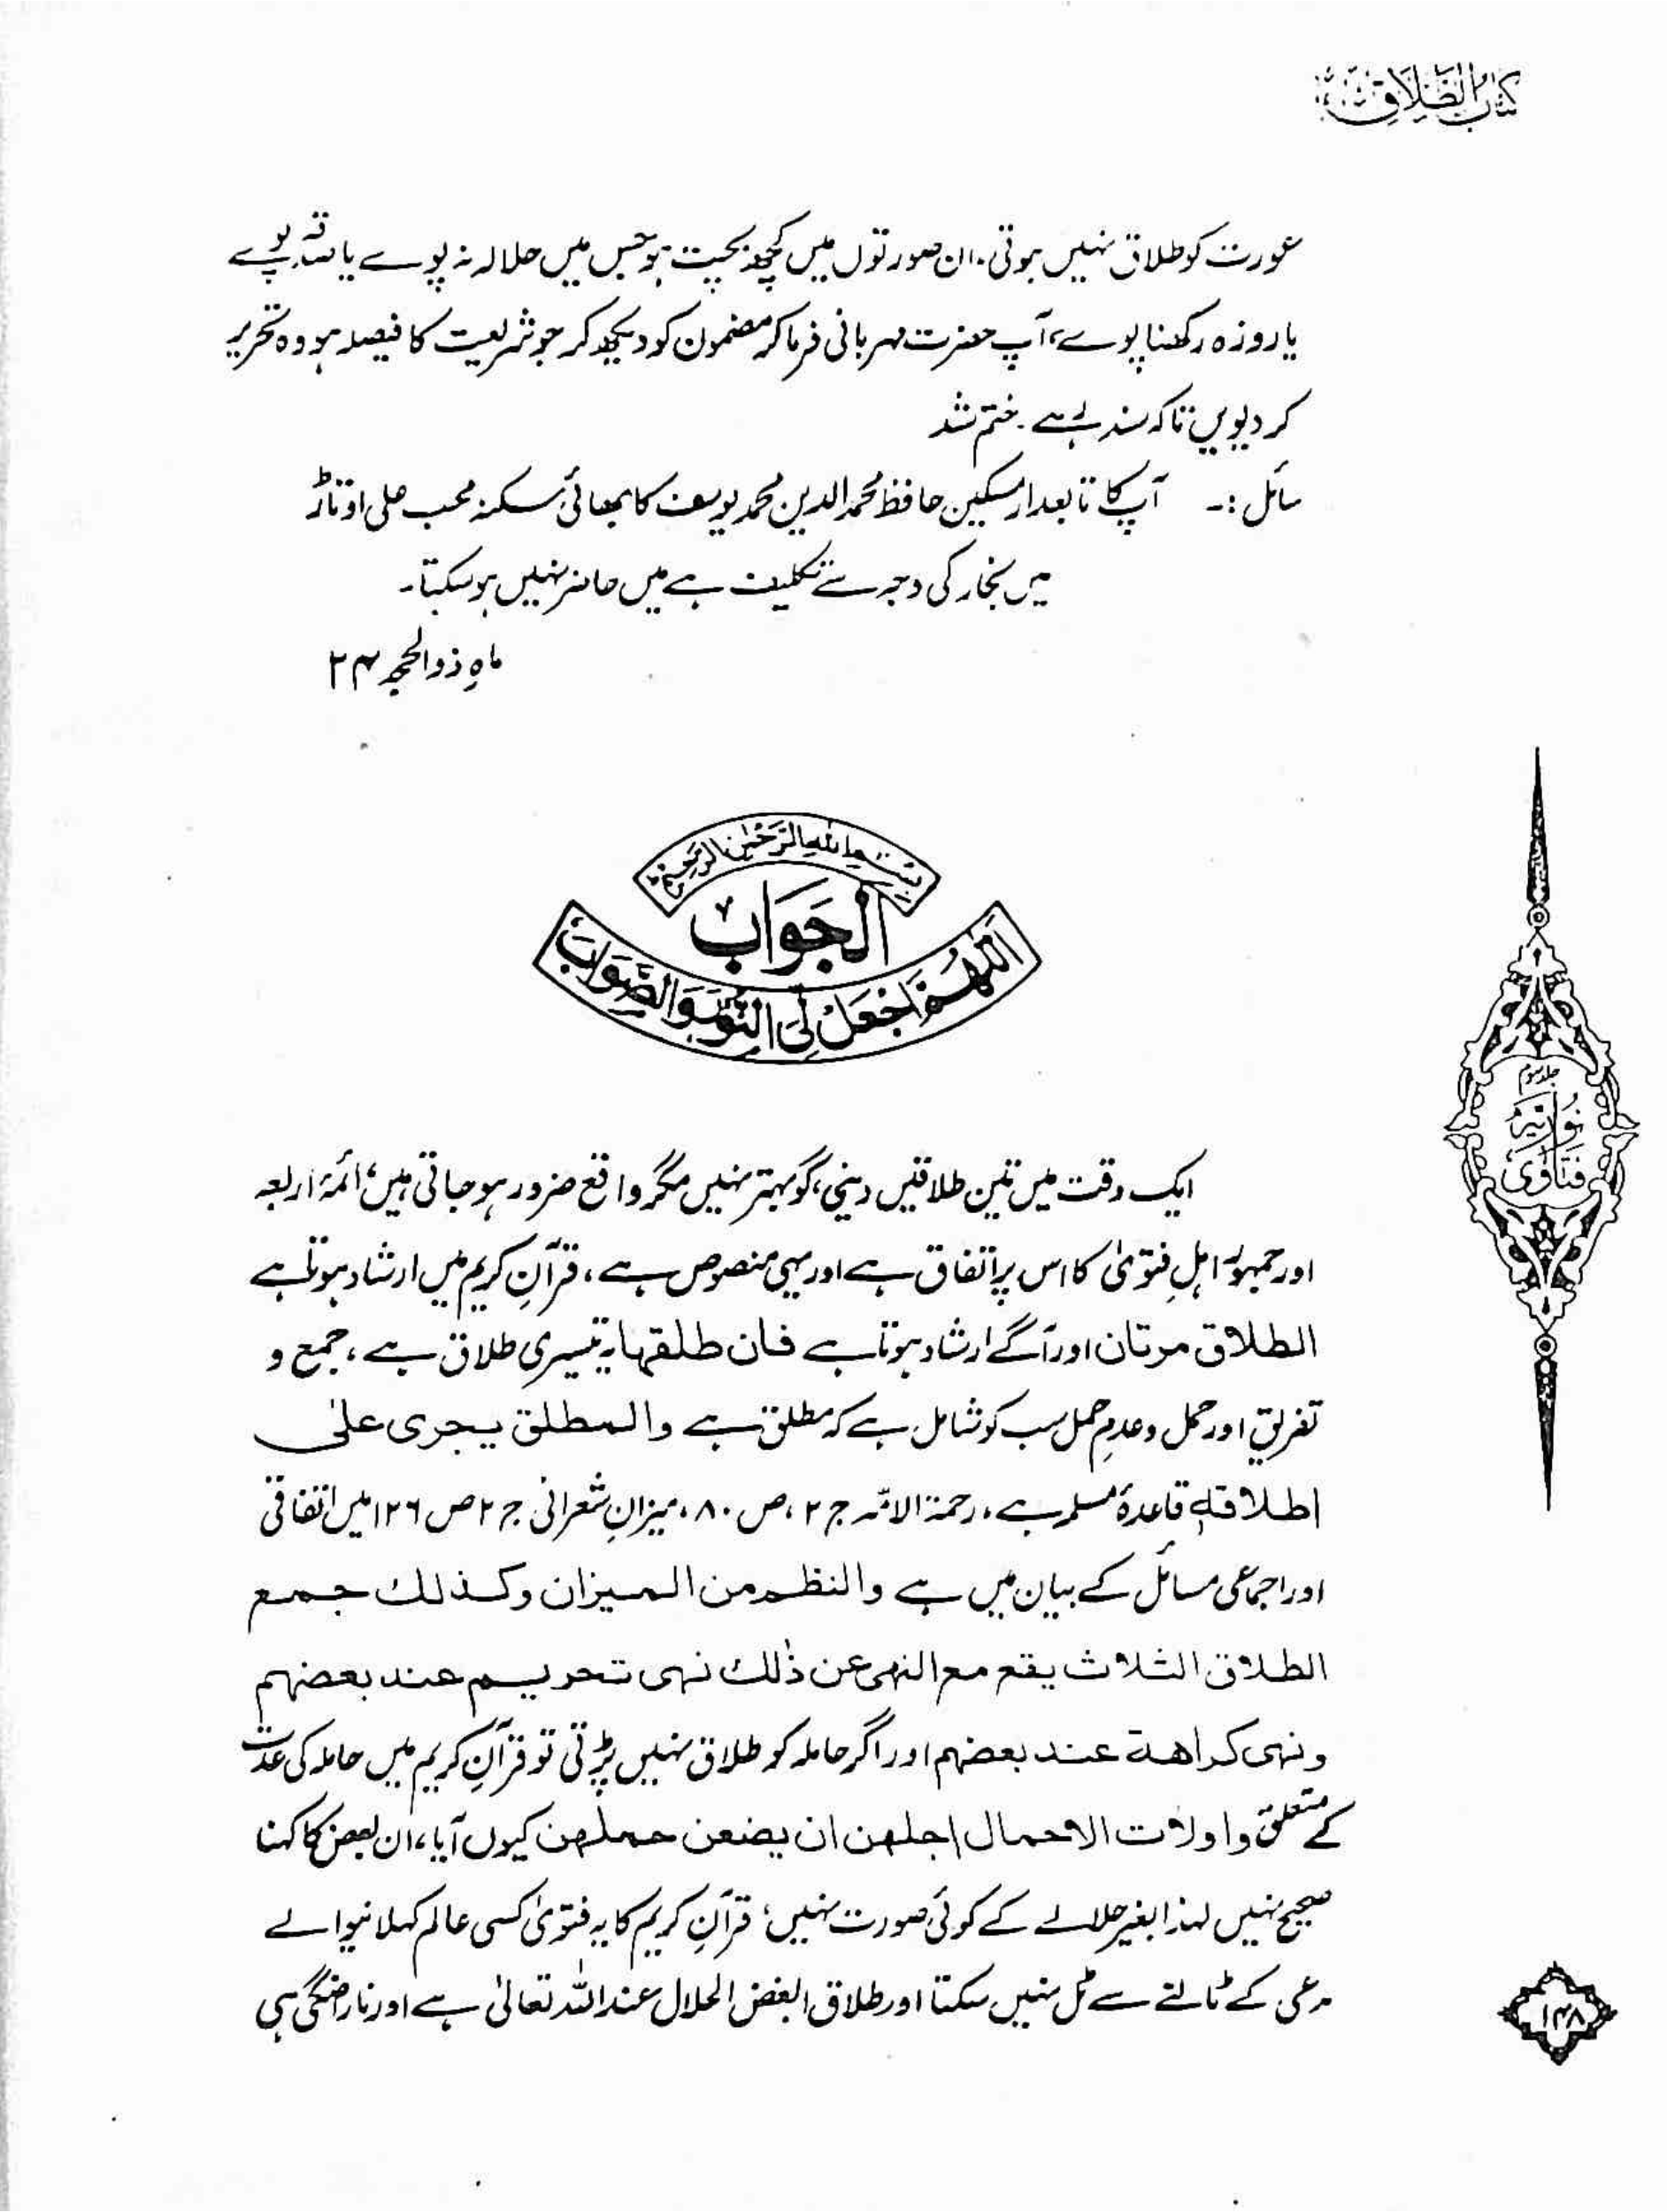 كتاب الطلاق
عورت کو طلاق نہیں ہوتی۔ ان صورتوں میں کچھ بچت ہو جس میں حلالہ نہ پوے یا ستہ پوے
یا روزہ رکھنا پوے، آپ حضرت مہربانی فرما کر مضمون کو دیکھ کر جو شریعت کا فیصلہ ہو وہ تحریر
کر دیویں تاکہ سند رہے۔ ختم شد
سائل :۔ آپ کا تابعدار مسکین حافظ محمد الدین محمد یوسف کا بھائی سکنہ محب علی اوتاڑ
میں بخار کی وجہ سے تکلیف ہے میں حاضر نہیں ہو سکتا۔
ماہِ ذوالحجہ ۲۴
بِسْمِ اللهِ الرَّحْمٰنِ الرَّحِيْمِ
اَلْجَوَابُ
اَللّٰهُمَّ اجْعَلْ لِّیَ النُّوْرَ وَالصَّوَابَ
ایک وقت میں تین طلاقیں دینی، گو بہتر نہیں مگر واقع ضرور ہو جاتی ہیں، ائمۂ اربعہ
اور جمہور اہلِ فتویٰ کا اس پر اتفاق ہے اور یہی منصوص ہے، قرآنِ کریم میں ارشاد ہوتا ہے
الطلاق مرتان اور آگے ارشاد ہوتا ہے فان طلقها یہ تیسری طلاق ہے، جمع و
تفریق اور حمل و عدمِ حمل سب کو شامل ہے کہ مطلق ہے والمطلق یجری علیٰ
اطلاقہٖ قاعدۂ مسلمہ ہے، رحمۃ الامہ ج ۲، ص ۸۰، میزانِ شعرانی ج ۲ ص ۱۲۶ میں اتفاقی
اور اجماعی مسائل کے بیان میں ہے والنظم من المیزان وکذلك جمع
الطلاق الثلاث یقع مع النهی عن ذٰلك نهی تحریم عند بعضهم
ونهی کراهة عند بعضهم اور اگر حاملہ کو طلاق نہیں پڑتی تو قرآنِ کریم میں حاملہ کی عدت
کے متعلق واولات الاحمال اجلهن ان یضعن حملهن کیوں آیا، ان بعض کا کہنا
صحیح نہیں لہذا بغیر حلالے کے کوئی صورت نہیں، قرآنِ کریم کا یہ فتویٰ کسی عالم کہلانیوالے
مدعی کے ٹالنے سے ٹل نہیں سکتا اور طلاق ابغض الحلال عند اللہ تعالیٰ ہے اور ناراضگی ہی
جلد سوم
نوریہ
فتاویٰ
۱۴۸